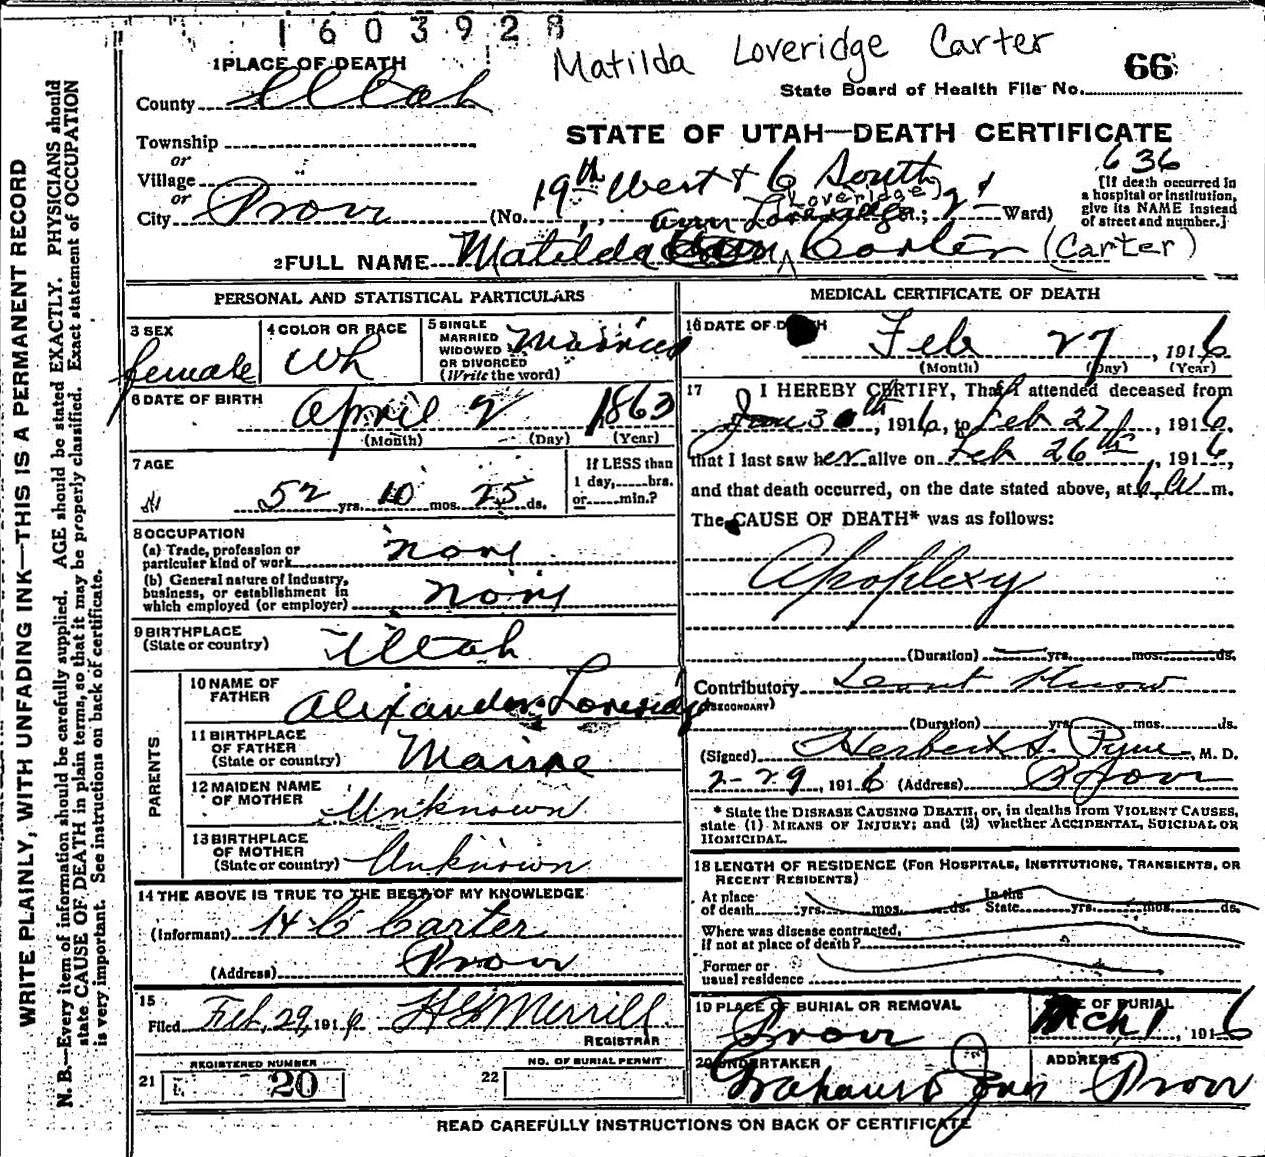 1603928
Matilda Loveridge Carter
66
State Board of Health File No.
1 PLACE OF DEATH
County Utah
STATE OF UTAH—DEATH CERTIFICATE
Township
or
Village
or
City Provo
(No. 19th West & 6 South ; 2d Ward)
636
[If death occurred in a hospital or institution, give its NAME instead of street and number.]
(Loveridge)
Ann Loveridge
2 FULL NAME Matilda Carter (Carter)
PERSONAL AND STATISTICAL PARTICULARS
3 SEX female
4 COLOR OR RACE Wh
5 SINGLE MARRIED WIDOWED OR DIVORCED (Write the word) Married
6 DATE OF BIRTH April 2 1863
(Month) (Day) (Year)
7 AGE 52 yrs. 10 mos. 25 ds.
If LESS than 1 day, hrs. or min.?
8 OCCUPATION
(a) Trade, profession or particular kind of work None
(b) General nature of industry, business, or establishment in which employed (or employer) None
9 BIRTHPLACE (State or country) Utah
PARENTS
10 NAME OF FATHER Alexander Loveridge
11 BIRTHPLACE OF FATHER (State or country) Maine
12 MAIDEN NAME OF MOTHER Unknown
13 BIRTHPLACE OF MOTHER (State or country) Unknown
14 THE ABOVE IS TRUE TO THE BEST OF MY KNOWLEDGE
(Informant) H C Carter
(Address) Provo
15
Filed Feb, 29, 1916 Merrill
REGISTRAR
21 REGISTERED NUMBER 20
22 NO. OF BURIAL PERMIT
MEDICAL CERTIFICATE OF DEATH
16 DATE OF DEATH Feb 27, 1916
(Month) (Day) (Year)
17 I HEREBY CERTIFY, That I attended deceased from
Jan 30th, 1916, to Feb 27, 1916,
that I last saw her alive on Feb 26th, 1916,
and that death occurred, on the date stated above, at 6 A m.
The CAUSE OF DEATH* was as follows:
Apoplexy
(Duration) yrs. mos. ds.
Contributory
(SECONDARY)
(Duration) yrs. mos. ds.
(Signed) Herbert S. Pyne M. D.
2-29, 1916 (Address) Provo
* State the DISEASE CAUSING DEATH, or, in deaths from VIOLENT CAUSES, state (1) MEANS OF INJURY; and (2) whether ACCIDENTAL, SUICIDAL OR HOMICIDAL.
18 LENGTH OF RESIDENCE (FOR HOSPITALS, INSTITUTIONS, TRANSIENTS, OR RECENT RESIDENTS)
At place of death yrs. mos. ds. In the State yrs. mos. ds.
Where was disease contracted, if not at place of death?
Former or usual residence
19 PLACE OF BURIAL OR REMOVAL Provo
DATE OF BURIAL Mch 1, 1916
20 UNDERTAKER
ADDRESS Provo
READ CAREFULLY INSTRUCTIONS ON BACK OF CERTIFICATE
WRITE PLAINLY, WITH UNFADING INK—THIS IS A PERMANENT RECORD
N. B.—Every item of information should be carefully supplied. AGE should be stated EXACTLY. PHYSICIANS should
state CAUSE OF DEATH in plain terms, so that it may be properly classified. Exact statement of OCCUPATION
is very important. See instructions on back of certificate.